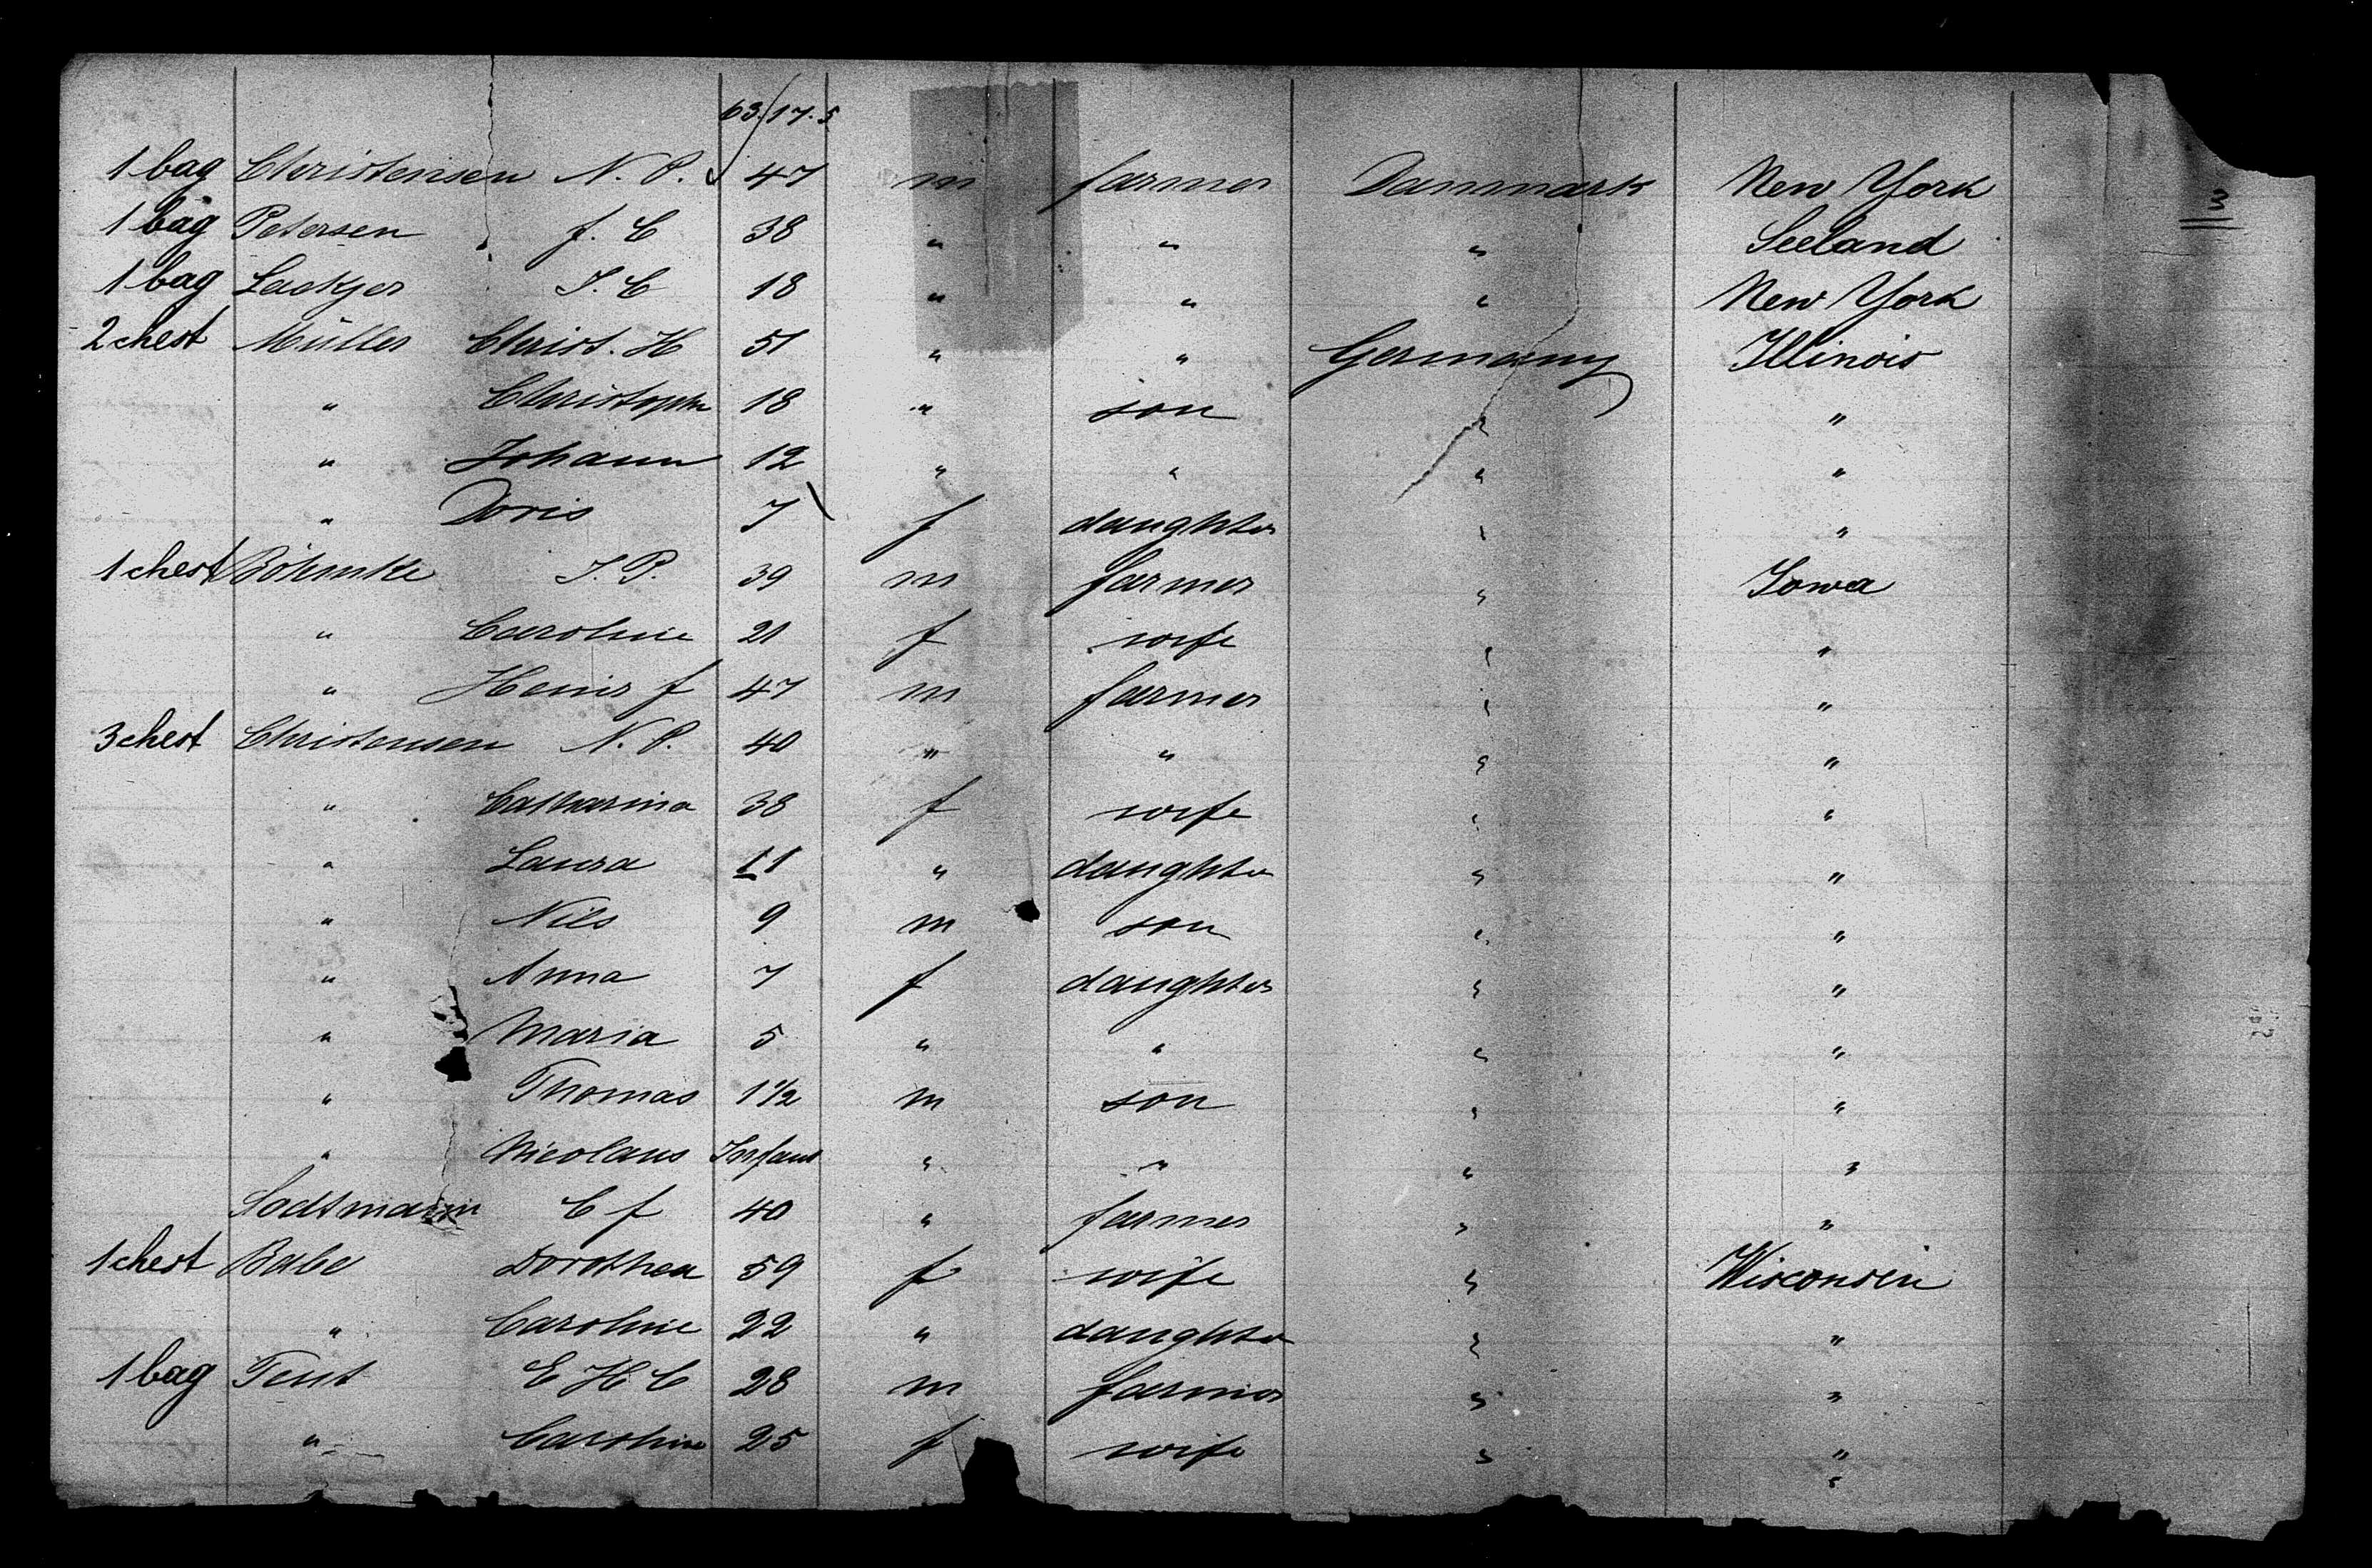 63/17.5
1 bag Christensen N. P. 47 m farmer Danmark New York
3
1 bag Petersen f. C 38 " " " Seeland
1 bag J. C 18 " " " New York
2 chest Müller Christ. H 51 " " Germany Illinois
" Christoph 18 " son " "
" Johann 12 " " " "
" Doris 7 f daughter " "
1 chest Böhmke J. P. 39 m farmer " Iowa
" Caroline 21 f wife " "
" Heinr f 47 m farmer " "
3 chest Christensen N. P. 40 " " " "
" Catharina 38 f wife " "
" Laura 11 " daughter " "
" Nils 9 m son " "
" Anna 7 f daughter " "
" Maria 5 " " " "
" Thomas 1 1/2 m son " "
" Nicolaus Infant " " " "
C f 40 " farmer " "
1 chest Babe Dorothea 59 f wife " Wisconsin
" Caroline 22 " daughter " "
1 bag E H C 28 m farmer " "
" Caroline 25 f wife " "
"